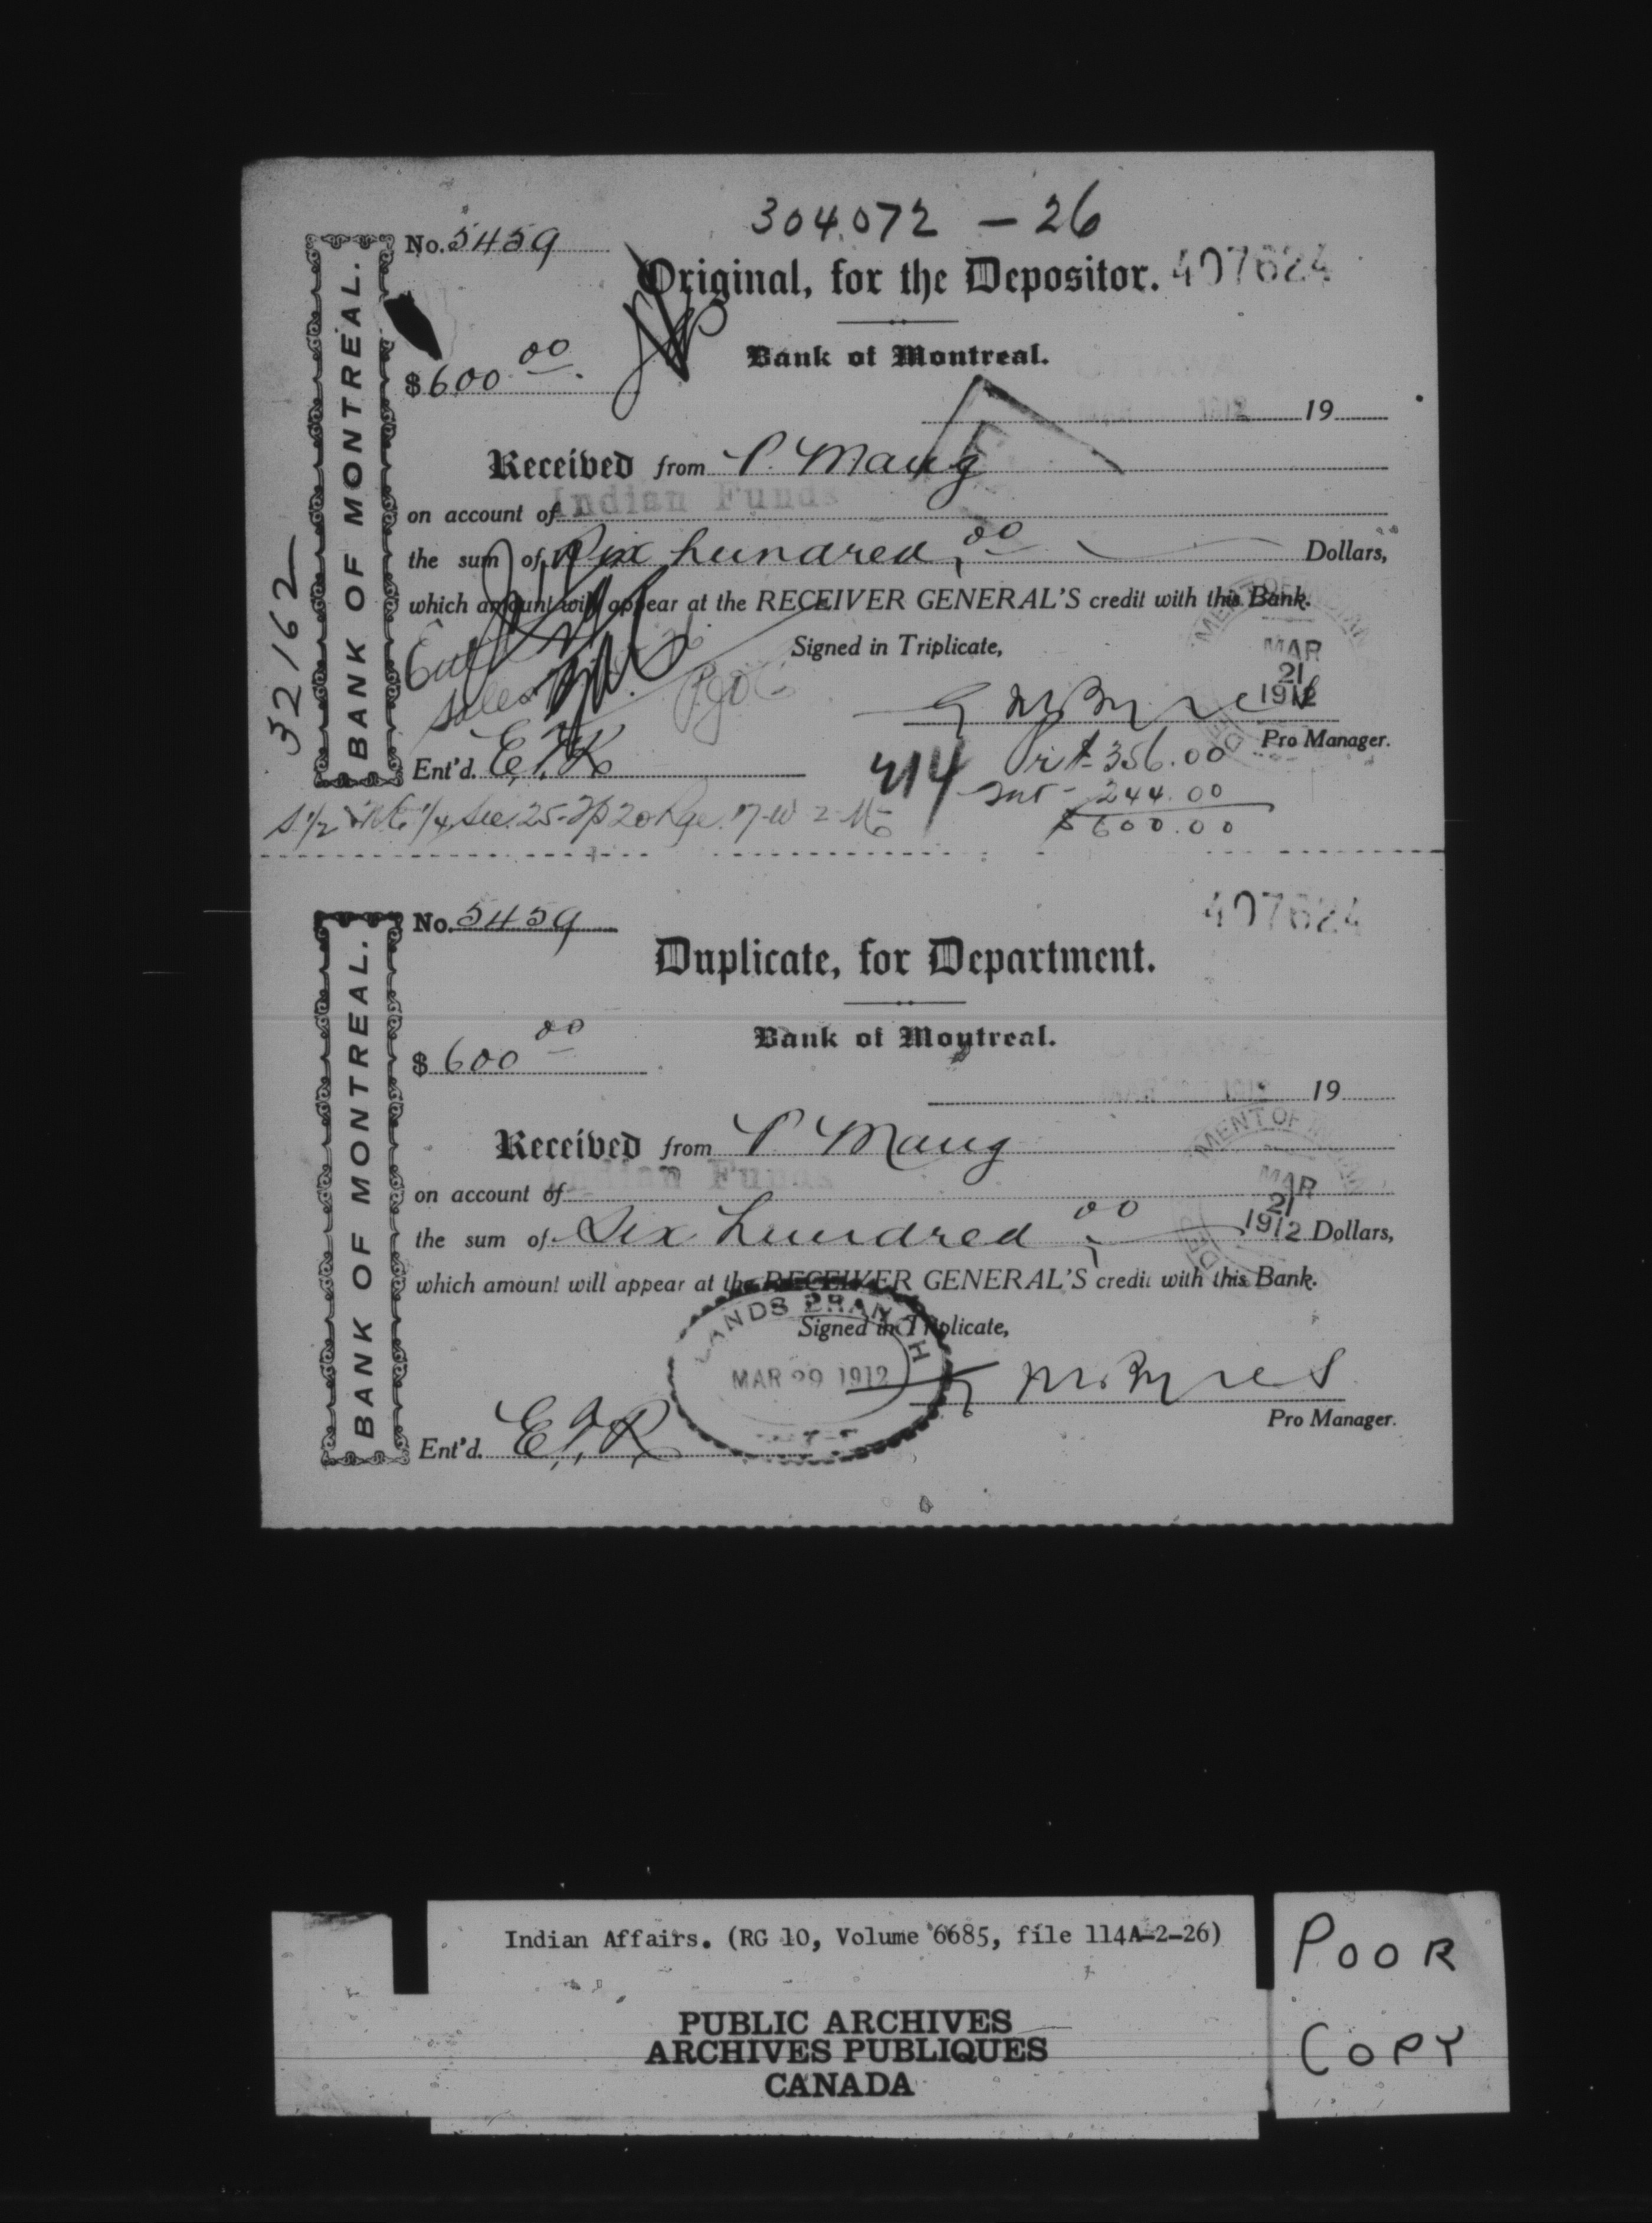 304,072 - 26
No. 5459
Original, for the Depositor. 407624
BANK OF MONTREAL.
$600 00
Bank of Montreal.
OTTAWA
MAR 1912 19
Received from P. Maug
on account of Indian Funds
the sum of Six hundred, 00 Dollars,
which amount will appear at the RECEIVER GENERAL'S credit with this Bank.
MENT OF INDIAN
32162
Signed in Triplicate,
MAR
21
1912
Sales
Pro Manager.
Ent'd.
414
Pri $ 356.00
Int - 244.00
$ 600.00
S. 1/2 N.E. 1/4 Sec. 25-Tp 20 Rge. 17-W 2-M
No. 5459
407624
Duplicate, for Department.
BANK OF MONTREAL.
$600 00
Bank of Montreal.
MAR 1912 19
MENT OF INDIAN
Received from P Maug
on account of Indian Funds
MAR
21
1912
the sum of Six hundred, 00 Dollars,
which amount will appear at the RECEIVER GENERAL'S credit with this Bank.
LANDS BRANCH
Signed in Triplicate,
MAR 29 1912
Pro Manager.
Ent'd.
Indian Affairs. (RG 10, Volume 6685, file 114A-2-26)
POOR
COPY
PUBLIC ARCHIVES
ARCHIVES PUBLIQUES
CANADA